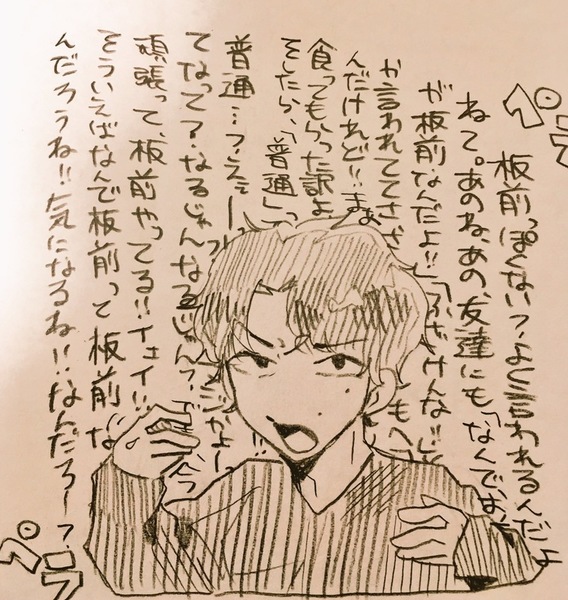 ペラ
板前っぽくない?よく言われるんだよ
ねて。あのね、あの、友達にも「なんでお
が板前なんだよ!!「ふざけんな!!」
か言われててさ
んだけれど!!まぁ
食ってもらった訳よ
そしたら、「普通」っ
普通…?えぇー
てなって?なるじゃんなるじゃん?で
頑張って、板前やってる!!イェイ!!
そういえばなんで板前って板前な
んだろうね!!気になるね!!なんだろーっ
ペラ